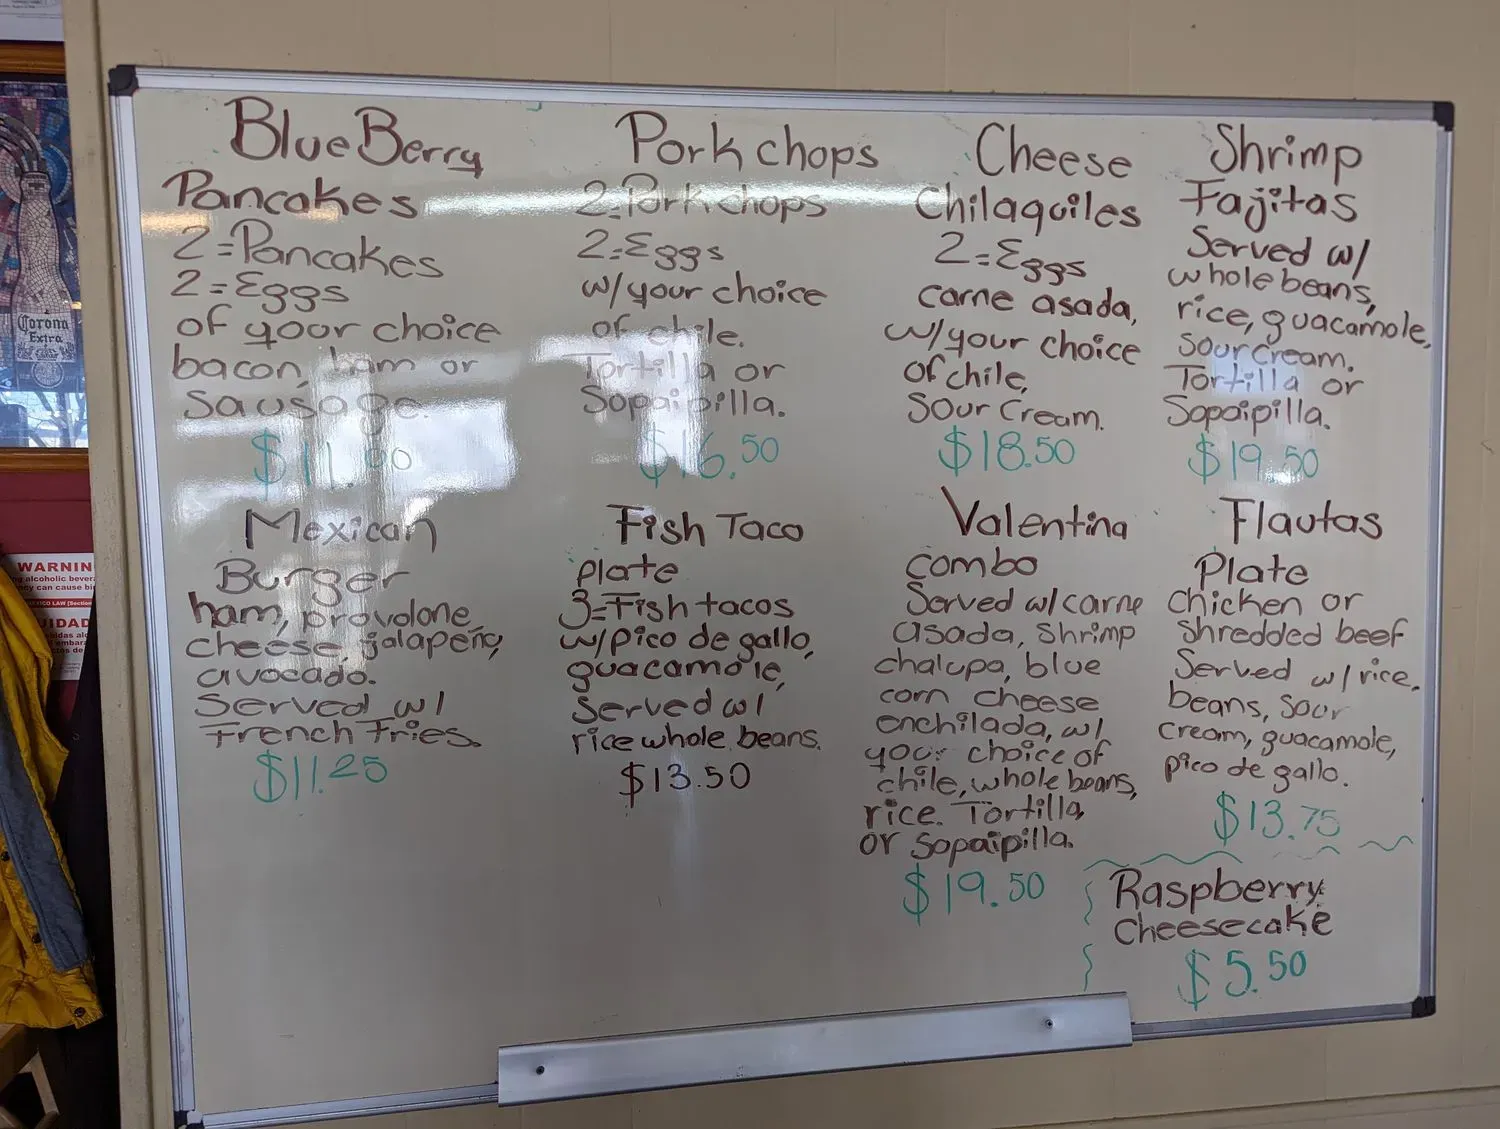 BlueBerry
Pancakes
2=Pancakes
2=Eggs
of your choice
bacon, ham or
Sausage.
$11.00
Pork chops
2=Pork chops
2=Eggs
w/your choice
of chile.
Tortilla or
Sopaipilla.
$16.50
Cheese
Chilaquiles
2=Eggs
carne asada,
w/your choice
of chile,
Sour Cream.
$18.50
Shrimp
Fajitas
Served w/
whole beans,
rice, guacamole,
sour cream.
Tortilla or
Sopaipilla.
$19.50
Mexican
Burger
ham, provolone
cheese, jalapeño,
avocado.
Served w/
French Fries.
$11.25
Fish Taco
plate
3=Fish tacos
w/pico de gallo,
guacamole,
Served w/
rice whole beans.
$13.50
Valentina
combo
Served w/carne
asada, Shrimp
chalupa, blue
corn cheese
enchilada, w/
your choice of
chile, whole beans,
rice. Tortilla
or Sopaipilla.
$19.50
Flautas
Plate
chicken or
shredded beef
Served w/rice,
beans, sour
cream, guacamole,
pico de gallo.
$13.75
Raspberry
Cheesecake
$5.50
Corona
Extra
WARNIN